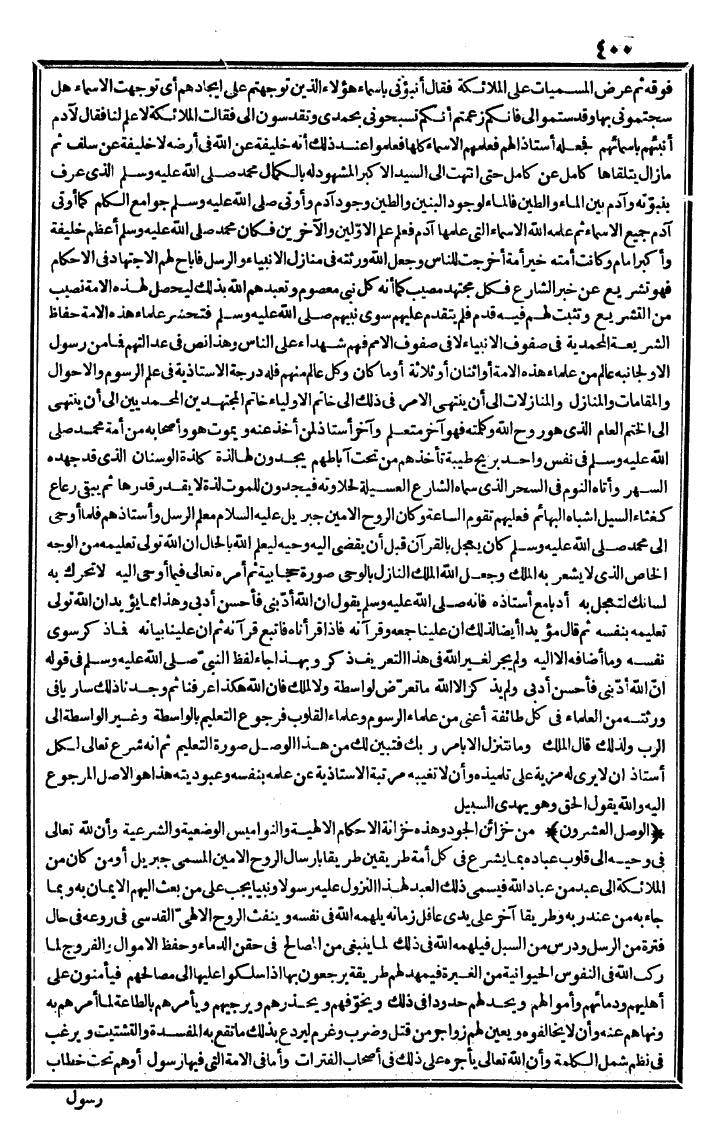 ٤٠٠
فوقه ثم عرض المسميات على الملائكة فقال أنبؤنى بأسماء هؤلاء الذين توجهتم على ايجادهم أى توجهت الاسماء هل
سبحتمونى بها وقدستموا لى فانكم زعمتم أنكم تسبحونى بحمدى وتقدسون الى فقالت الملائكة لا علم لنا فقال لآدم
أنبئهم بأسمائهم فجعله أستاذ الهم فعلمهم الاسماء كلها فعلموا عند ذلك أنه خليفة عن الله فى أرضه لا خليفة عن سلف ثم
مازال يتلقاها كامل عن كامل حتى انتهت الى السيد الاكبر المشهود له بالكمال محمد صلى الله عليه وسلم الذى عرف
بنبوّته وآدم بين الماء والطين فالماء لوجود البنين والطين وجود آدم وأوتى صلى الله عليه وسلم جوامع الكلم كما أوتى
آدم جميع الاسماء ثم علمه الله الاسماء التى علمها آدم فعلم علم الاوّلين والآخرين فكان محمد صلى الله عليه وسلم أعظم خليفة
وأكبر امام وكانت أمته خير أمة أخرجت للناس وجعل الله ورثته فى منازل الانبياء والرسل فاباح لهم الاجتهاد فى الاحكام
فهو تشريع عن خبر الشارع فكل مجتهد مصيب كما أنه كل نبى معصوم وتعبدهم الله بذلك ليحصل لهذه الامة نصيب
من التشريع وتثبت لهم فيه قدم فلم يتقدم عليهم سوى نبيهم صلى الله عليه وسلم فتحشر علماء هذه الامة حفاظ
الشريعة المحمدية فى صفوف الانبياء لا فى صفوف الامم فهم شهداء على الناس وهذا نص فى عدالتهم فما من رسول
الا ولجانبه عالم من علماء هذه الامة أو اثنان أو ثلاثة أو ما كان وكل عالم منهم فله درجة الاستاذية فى علم الرسوم والاحوال
والمقامات والمنازل والمنازلات الى أن ينتهى الامر فى ذلك الى خاتم الاولياء خاتم المجتهدين المحمديين الى أن ينتهى
الى الختم العام الذى هو روح الله وكلمته فهو آخر متعلم وآخر أستاذ لمن أخذ عنه ويموت هو وأصحابه من أمة محمد صلى
الله عليه وسلم فى نفس واحد بريح طيبة تأخذهم من تحت آباطهم يجدون لها لذة كلذة الوسنان الذى قد جهده
السهر وأتاه النوم فى السحر الذى سماه الشارع العسيلة لحلاوته فيجدون للموت لذة لا يقدر قدرها ثم يبقى رعاع
كغثاء السيل أشباه البهائم فعليهم تقوم الساعة وكان الروح الامين جبريل عليه السلام معلم الرسل وأستاذهم فلما أوحى
الى محمد صلى الله عليه وسلم كان يعجل بالقرآن قبل أن يقضى اليه وحيه ليعلم الله بالحال ان الله تولى تعليمه من الوجه
الخاص الذى لا يشعر به الملك وجعل الله الملك النازل بالوحى صورة حجابية ثم أمره تعالى فيما أوحى اليه لا تحرك به
لسانك لتعجل به أدبا مع أستاذه فانه صلى الله عليه وسلم يقول ان الله أدّبنى فأحسن أدبى وهذا مما يؤيد ان الله تولى
تعليمه بنفسه ثم قال مؤيدا أيضا لذلك ان علينا جمعه وقرآنه فاذا قرأناه فاتبع قرآنه ثم ان علينا بيانه فماذكر سوى
نفسه وما أضافه الا اليه ولم يجر لغير الله فى هذا التعريف ذكر وبهذا جاء لفظ النبىّ صلى الله عليه وسلم فى قوله
انّ الله أدّبنى فأحسن أدبى ولم يذكر الا الله ما تعرّض لواسطة ولا لملك فان الله هكذا عرفنا ثم وجدنا ذلك ساريا فى
ورثته من العلماء فى كل طائفة أعنى من علماء الرسوم وعلماء القلوب فرجوع التعليم بالواسطة وغير الواسطة الى
الرب ولذلك قال الملك وما نتنزل الا بامر ربك فتبين لك من هذا الوصل صورة التعليم ثم انه شرع تعالى لكل
أستاذ ان لا يرى له مزية على تلميذه وأن لا تغيبه مرتبة الاستاذية عن علمه بنفسه وعبوديته هذا هو الاصل المرجوع
اليه والله يقول الحق وهو يهدى السبيل
﴿الوصل العشرون﴾ من خزائن الجود وهذه خزانة الاحكام الالهية والنواميس الوضعية والشرعية وأن لله تعالى
فى وحيه الى قلوب عباده بما يشرع فى كل أمة طريقين طريقا بارسال الروح الامين المسمى جبريل أو من كان من
الملائكة الى عبد من عباد الله فيسمى ذلك العبد لهذا النزول عليه رسولا ونبيا يجب على من بعث اليهم الايمان به وبما
جاء به من عند ربه وطريقا آخر على يدى عاقل زمانه يلهمه الله فى نفسه وينفث الروح الالهىّ القدسى فى روعه فى حال
فترة من الرسل ودرس من السبل فيلهمه الله فى ذلك لما ينبغى من المصالح فى حقن الدماء وحفظ الاموال والفروج لما
ركب الله فى النفوس الحيوانية من الغيرة فيمهد لهم طريقة يرجعون بها اذا سلكوا عليها الى مصالحهم فيأمنون على
أهليهم ودمائهم وأموالهم ويحد لهم حدودا فى ذلك ويخوّفهم ويحذرهم ويرجيهم ويأمرهم بالطاعة لما أمرهم به
ونهاهم عنه وأن لا يخالفوه ويعين لهم زواجر من قتل وضرب وغرم ليردع بذلك ما تقع به المفسدة والتشتيت ويرغب
فى نظم شمل الكلمة وأن الله تعالى يأجره على ذلك فى أصحاب الفترات وأما فى الامة التى فيها رسول أو هم تحت خطاب
رسول